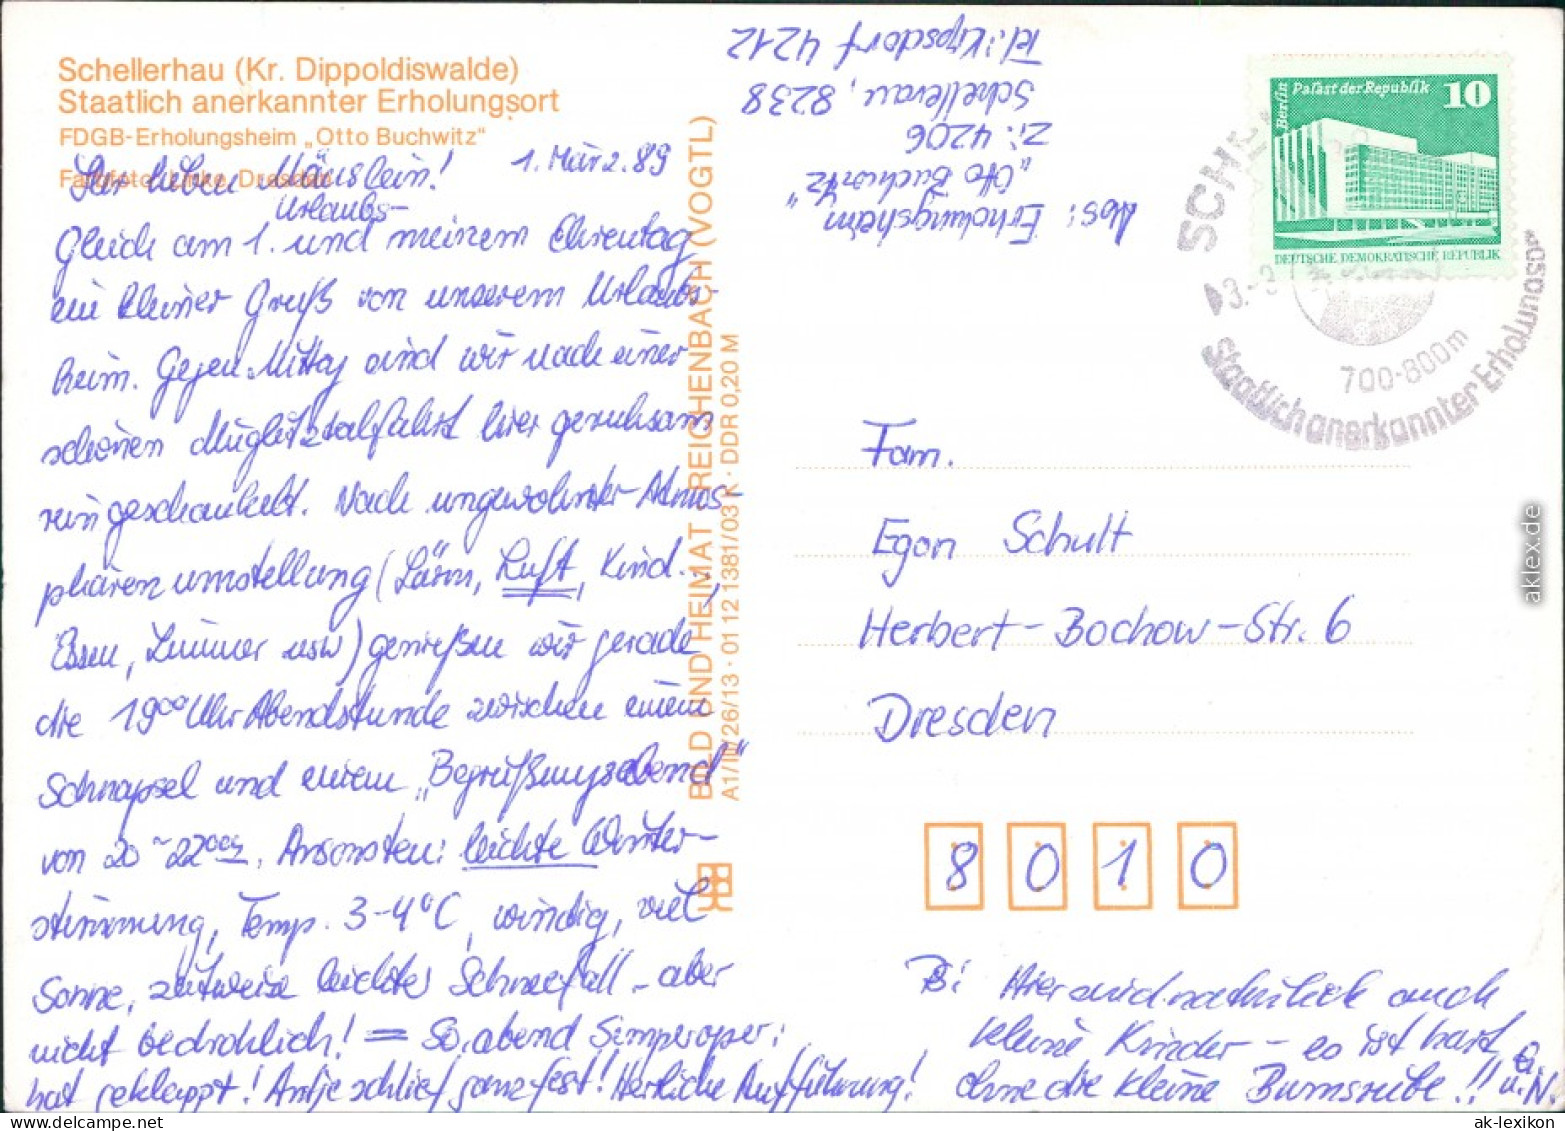 Schellerhau (Kr. Dippoldiswalde)
Staatlich anerkannter Erholungsort
FDGB-Erholungsheim „Otto Buchwitz"
Farbfoto: Linke, Dresden
Ihr lieben Mäuslein! 1. März. 89
Urlaubs-
Gleich am 1. und meinem Ehrentag
ein kleiner Gruß von unserem Urlaubs-
heim. Gegen Mittag sind wir nach einer
schönen Müglitztalfahrt hier geruhsam
reingeschaukelt. Nach ungewohnter Atmos-
phärenumstellung (Lärm, Luft, Kind..,
Essen, Zimmer usw) genießen wir gerade
die 19⁰⁰ Uhr Abendstunde zwischen einem
Schnapsel und einem „Begrüßungsabend"
von 20 - 22⁰⁰. Ansonsten: leichte Winter-
stimmung, Temp. 3-4°C, windig, viel
Sonne, zeitweise leichter Schneefall - aber
nicht bedrohlich! = So. abend Semperoper:
hat geklappt! Antje schlief ganz fest! Herrliche Aufführung!
BILD UND HEIMAT REICHENBACH (VOGTL)
A1/III/26/13 · 01 12 1381/03 K · DDR 0,20 M
Abs: Erholungsheim
„Otto Buchwitz"
Zi: 4206
Schellerau, 8238
Tel.: Kipsdorf 4212
Berlin
Palast der Republik 10
DEUTSCHE DEMOKRATISCHE REPUBLIK
700-800m
Staatlich anerkannter Erholungsort
Fam.
Egon Schult
Herbert-Bochow-Str. 6
Dresden
8010
PS: Hier sind natürlich auch
kleine Kinder - es ist hart,
ohne die kleine Bumsrübe!!
u. N.
aklex.de
ak-lexikon